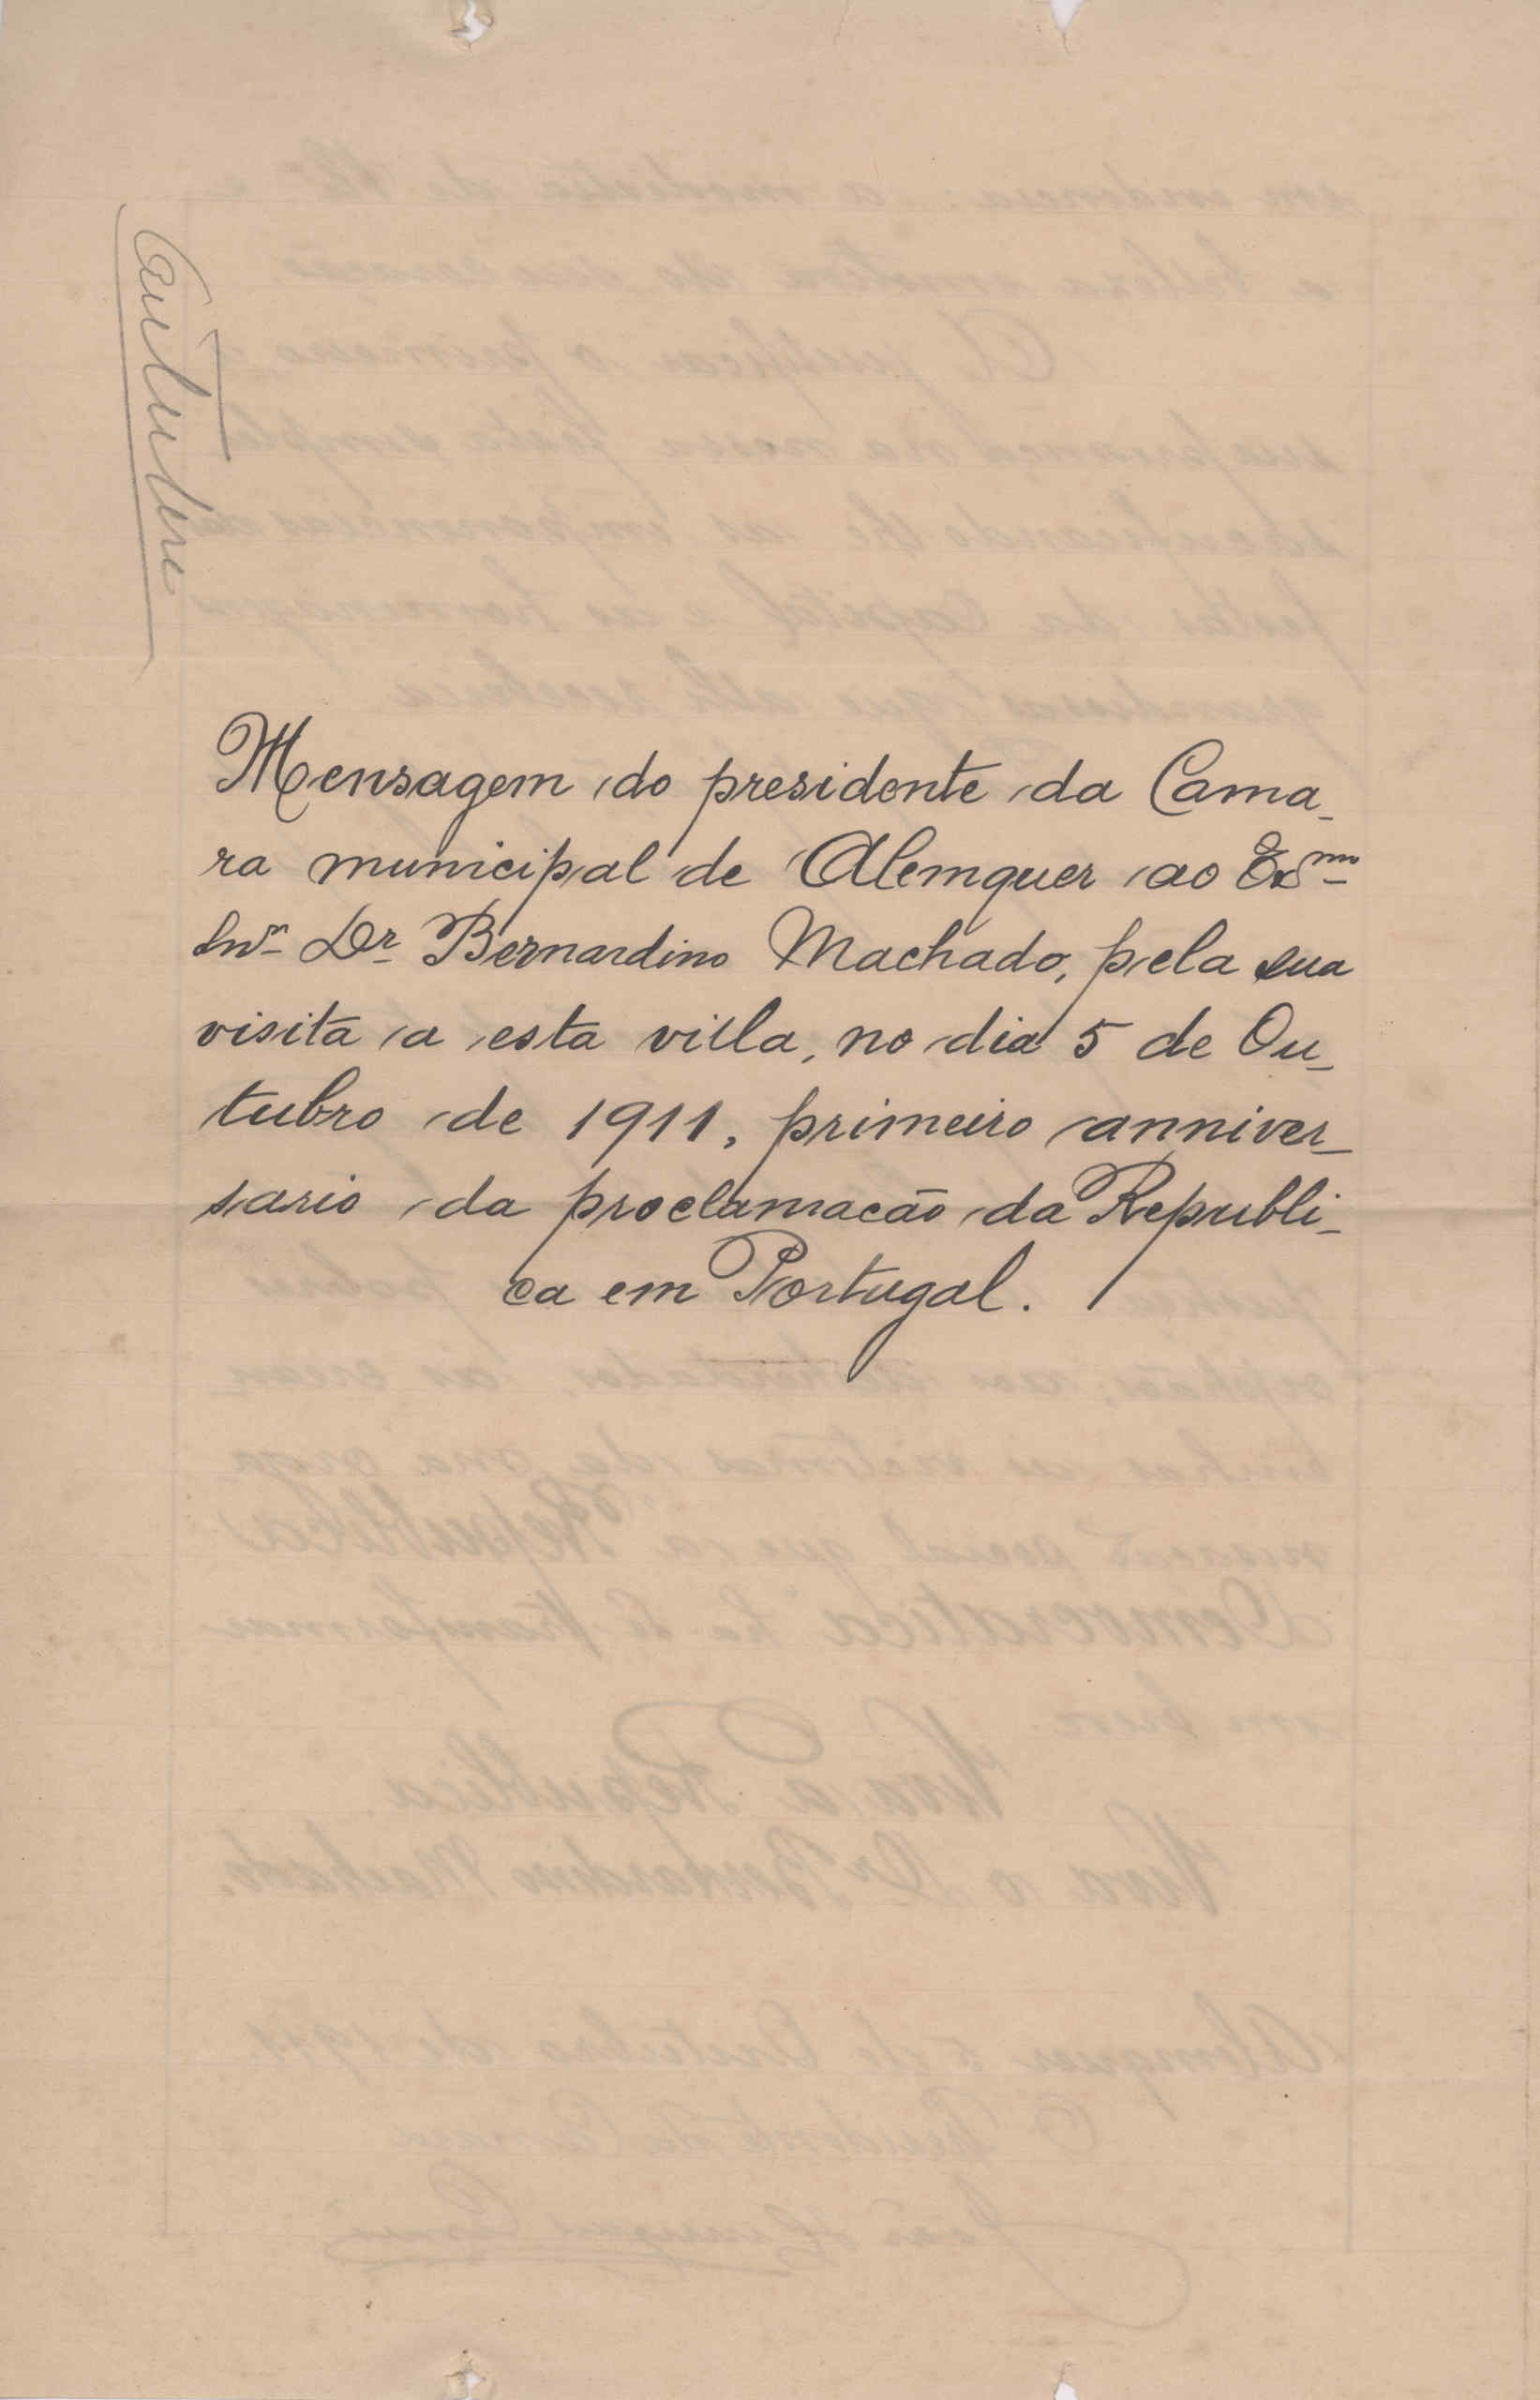 Mensagem do presidente da Cama-
ra municipal de Alemquer ao Exmo
Snr Dr Bernardino Machado, pela sua
visita a esta villa, no dia 5 de Ou-
tubro de 1911, primeiro anniver-
sario da proclamacão da Republi-
ca em Portugal.